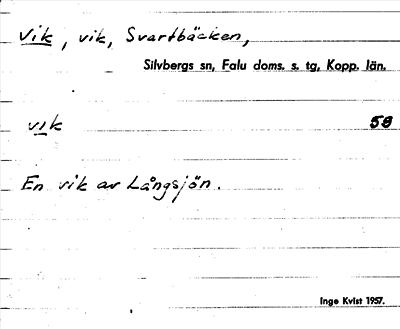 Vik, vik, Svartbäcken,
Silvbergs sn, Falu doms. s. tg, Kopp. län.
vik 58
En vik av Långsjön.
Inge Kvist 1957.